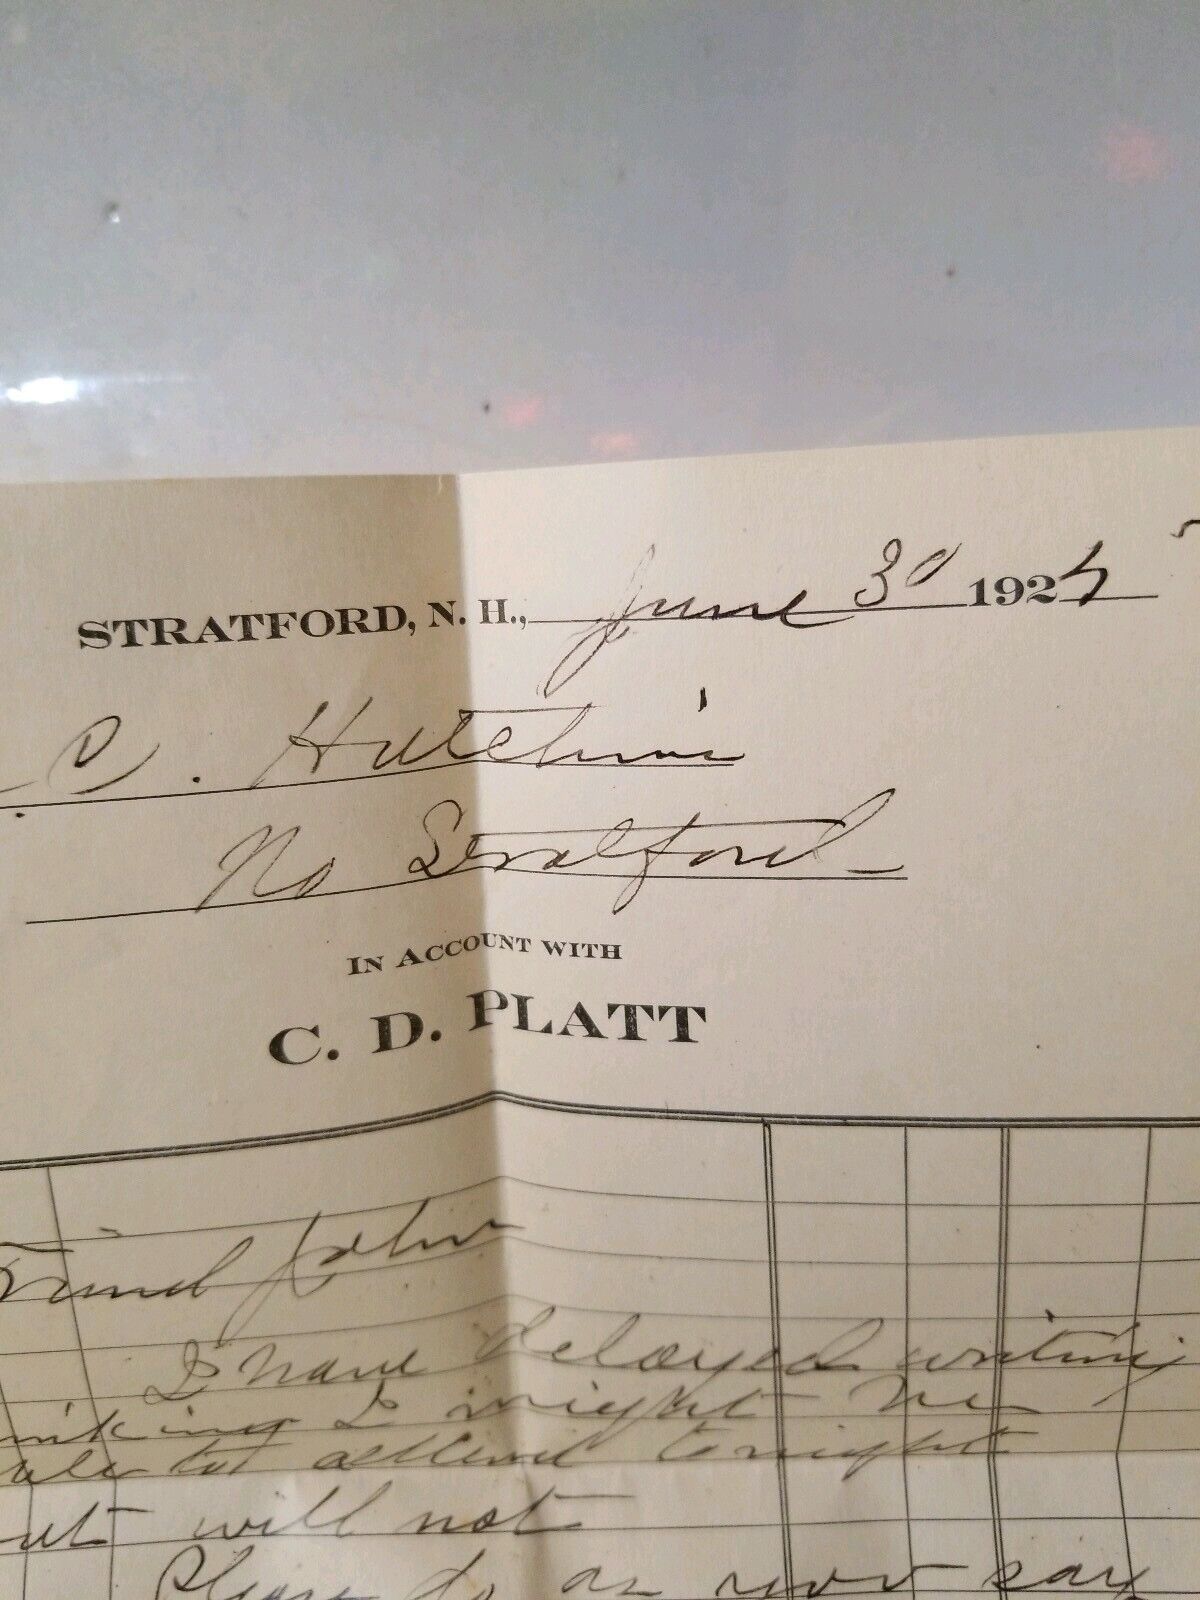 STRATFORD, N. H., June 30 1925
C. Hutchins
No Stratford
IN ACCOUNT WITH
C. D. PLATT
Friend John
I have delayed writing
thinking I might be
able to attend tonight
but will not
Please do as you say